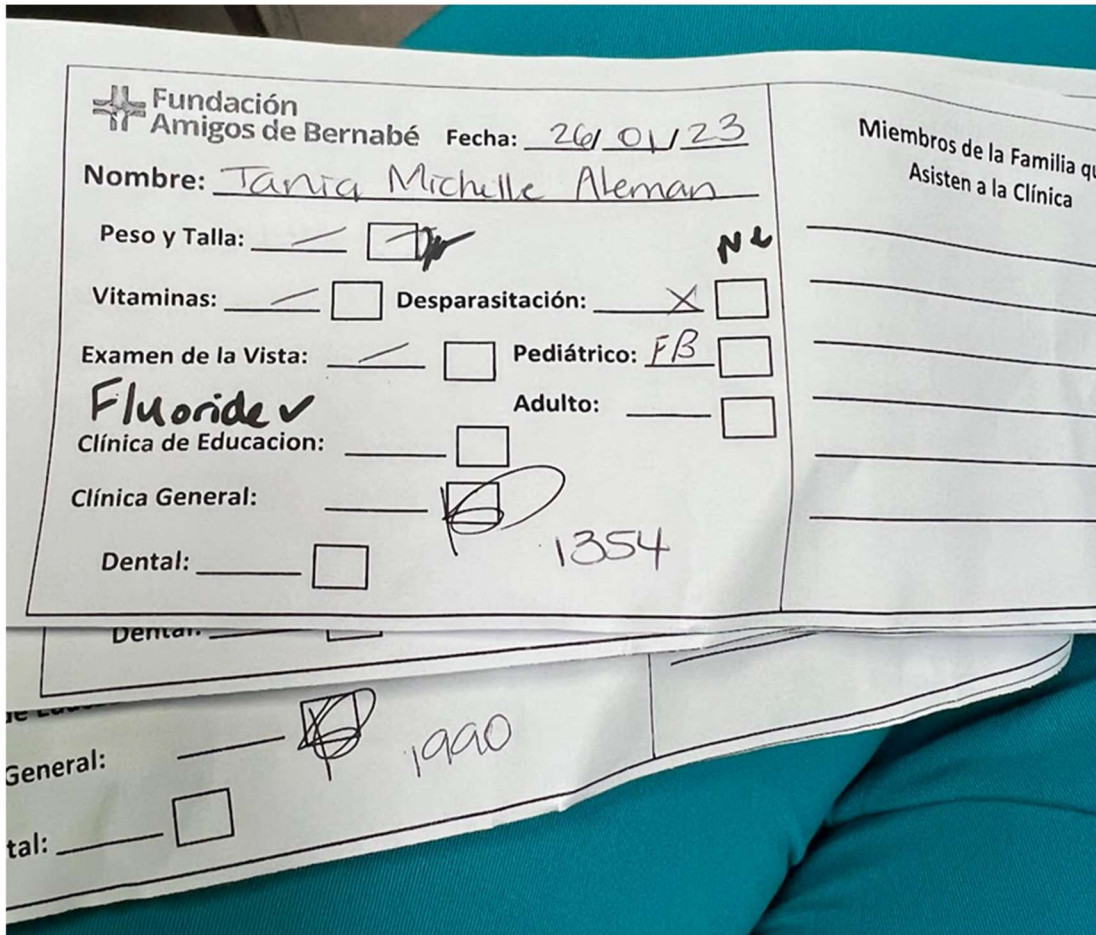 Fundación
Amigos de Bernabé Fecha: 26/01/23
Nombre: Tania Michelle Aleman
Peso y Talla:
Vitaminas: Desparasitación: X
Examen de la Vista: Pediátrico: FB
Fluoride ✓
Adulto:
Clínica de Educacion:
Clínica General:
1354
Dental:
Miembros de la Familia qu
Asisten a la Clínica
Dental:
General: 1990
tal: